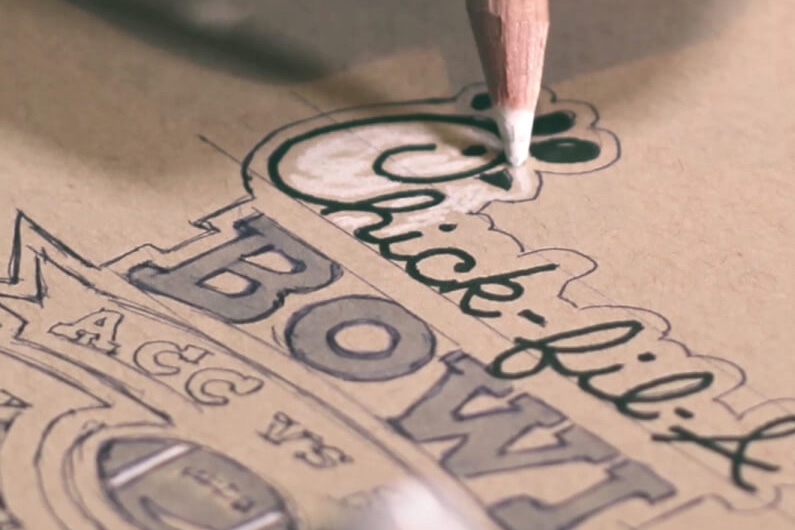 Chick-fil-A
BOWL
ACC vs